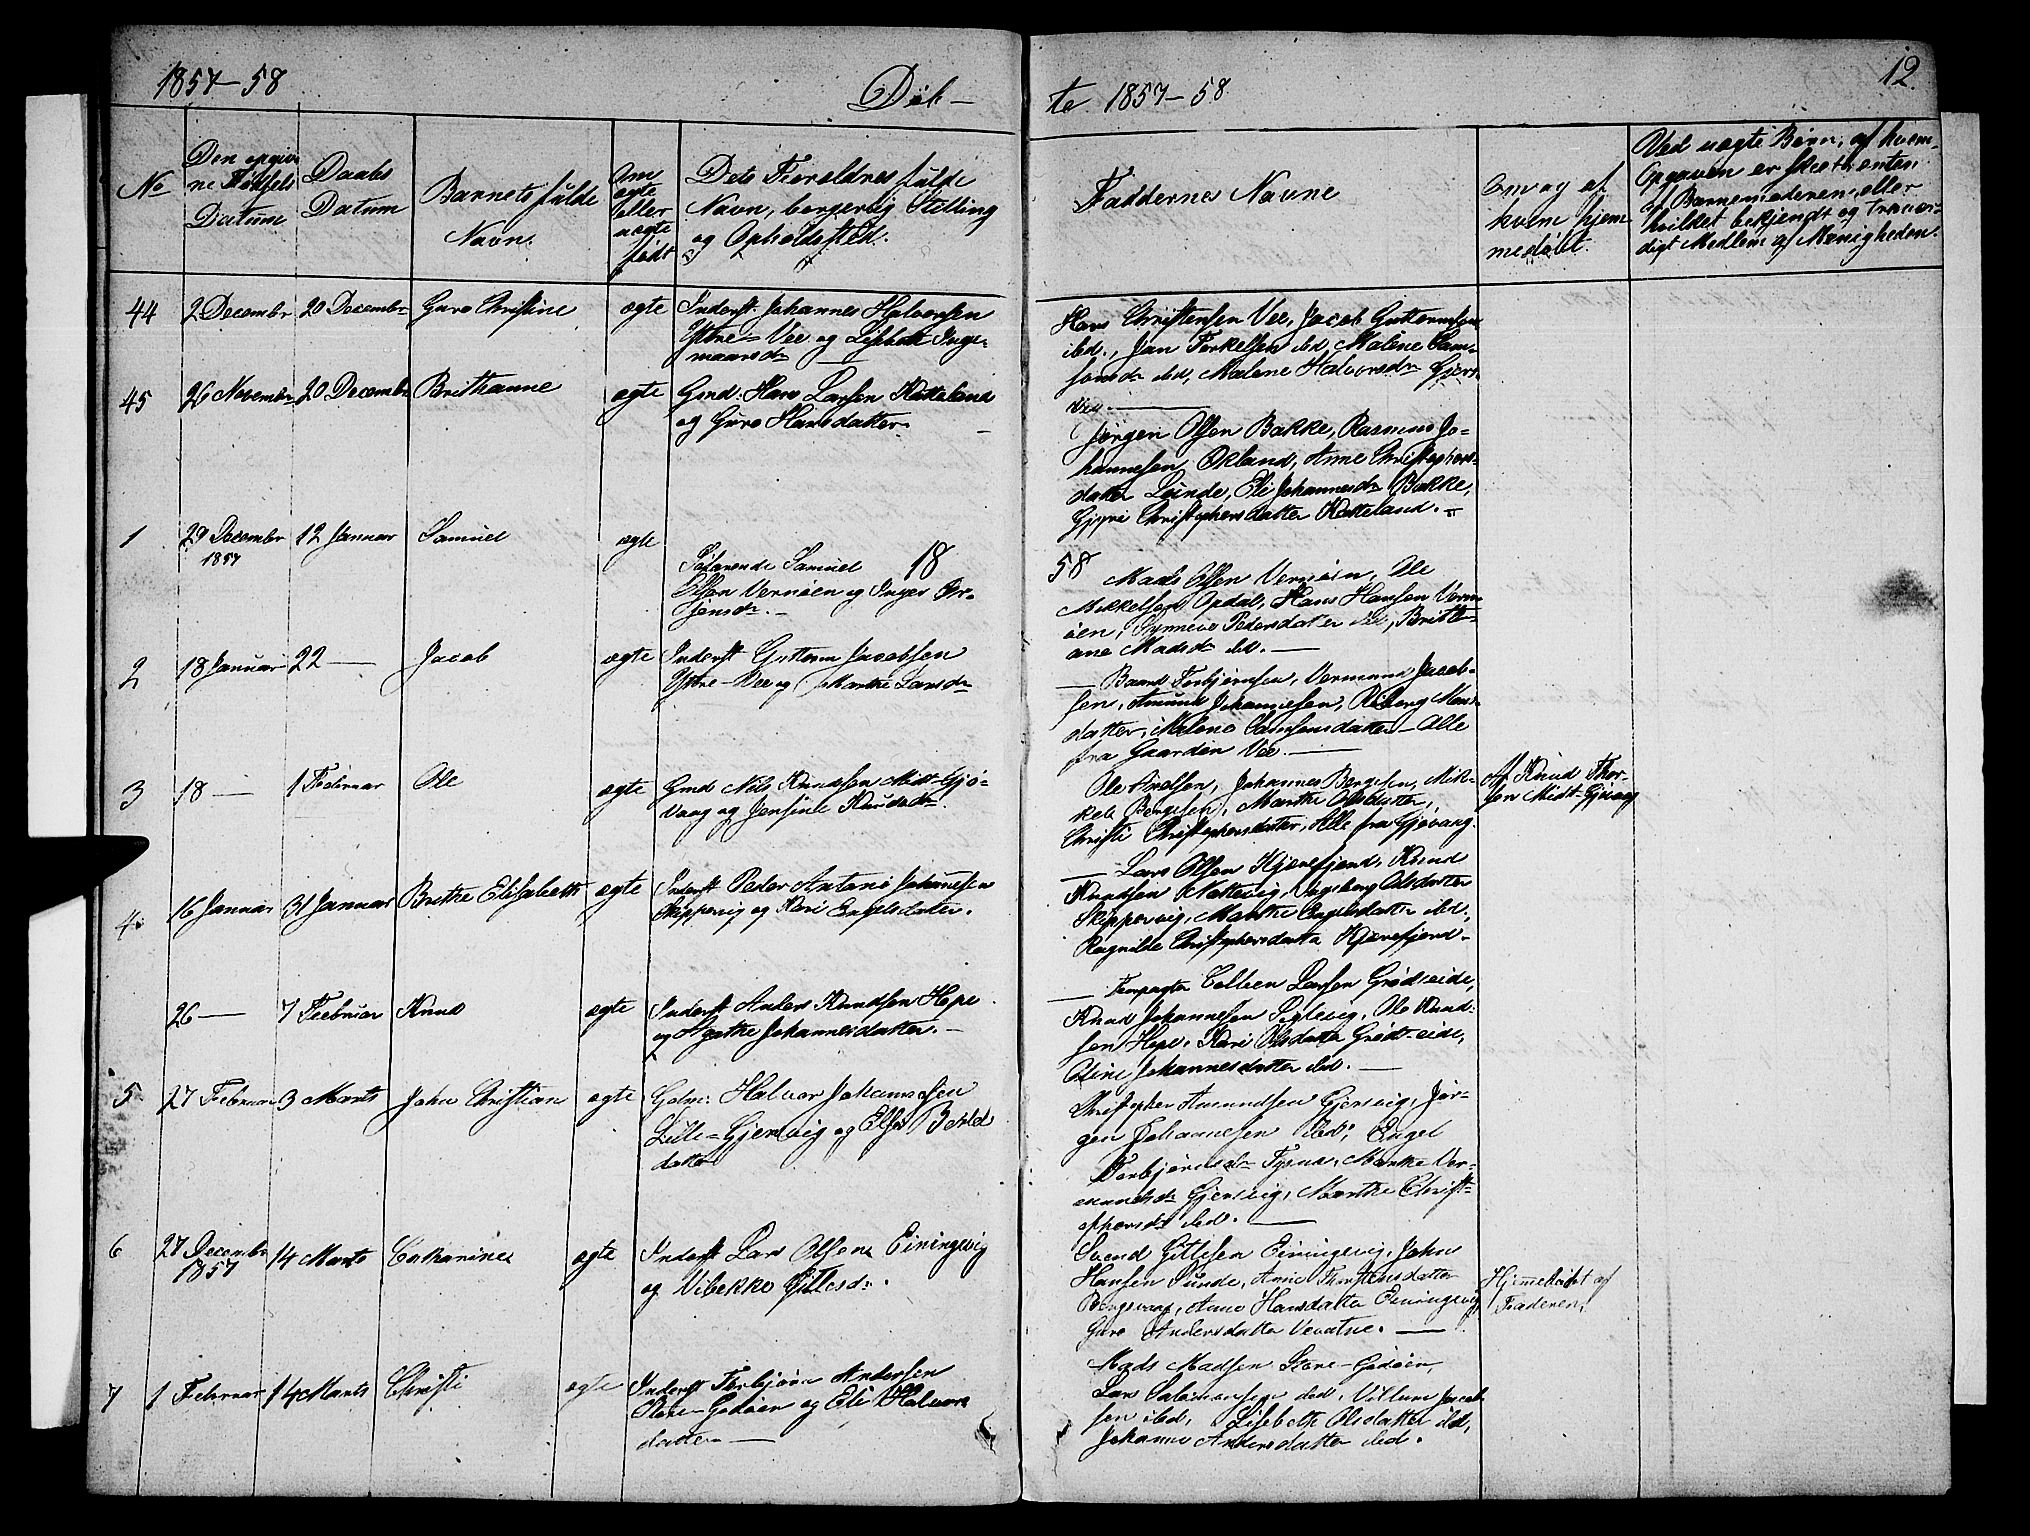 1857-58
Døb-
te 1857-58
12.
No
Den opgiv-
ne Fødsels
Datum
Daabs
Datum
Barnets fulde
Navn.
Om
ægte
eller
uægte
født
Dets Forældres fulde
Navn, borgerlig Stilling
og Opholdssted.
Faddernes Navne
Om og af
hvem hjem-
medøbt.
Ved uægte Børn, af hvem
Opgaven er skeet enten
af Barnemoderen eller
hvilket bekjendt og trovær-
digt Medlem af Menigheden.
44
2 Decembr
20 Decembr
Guro Christine
ægte
Inderst Johannes Halvorsen
Ystre-Vee og Lisbeth Inge-
maarsdr
Hans Christensen Vee, Jacob Guttormsen
ibd., Jan Torkelsen ibd, Malene Sam-
sonsdr ibd, Malene Halvorsdr Gjers-
vig.
45
26 Novembr
20 Decembr
Brithanne
ægte
Gmd. Hans Larsen
og Guro Hansdatter.
Jørgen Olsen Bakke, Rasmus Jo-
hannesen Økland, Anne Christophers-
datter Lunde, Eli Johannesdr Bakke,
Christophersdatter
18
58
1
29 Decembr
1857
12 Januar
Samuel
ægte
Samuel
Olsen Vernøen og Inger Ør-
jensdr.
Mads Olsen Vernøen, Ole
Mikkelsen Opdal, Hans Hansen Vern-
øen, Synneve Pedersdatter ibd, Britte-
ane Madsdr ibd.
2
18 Januar
22
Jacob
ægte
Inderst Guttorm Jacobsen
Ystre-Vee og Marthe Larsdr
Baard Torbjørnsen, Vermund Jacob-
sen, Amund Johannesen,
datter, Malene Samsonsdatter- Alle
fra Gaarden Vee.
3
18
1 Februar
Ole
ægte
Gmd Nils Knudsen Midt-Gjø-
vaag og Jensine Knudsdr.
Ole Johannes Bergesen, Mik-
kel Bergesen, Marthe Olsdatter,
Christi Christophersdatter, Alle fra Gjøvaag.
Af Knud Thor-
sen Midt-Gjøvaag
4.
16 Januar
31 Januar
Brithe Elisabeth
ægte
Inderst Peder Antoni Johannesen
Skippervig og Kari Engelsdatter.
Lars Olsen Hjørnefjord, Knud
Knudsen Nattevig, Ingeborg Olsdatter
Skippervig, Marthe Engelsdatter ibd,
Ragnilde Christophersdatter
26
7 Februar
Knud
ægte
Inderst Anders Knudsen Hope
og Agathe Johannesdatter.
Forpagter Colleen Larsen Grødseide,
Knud Johannesen Teglevig, Ole Knud-
sen Hope, Kari Olsdatter Grødseide,
Oline Johannesdatter ibd.
5
27 Februar
3 Marts
John Christian
ægte
Halvor Johannesen
Lille-Gjersvig og Elsa
datter
Christopher Amundsen Gjersvig, Jør-
gen Johannesen ibd, Engel
Torbjørnsdr Tysnæs, Marthe Ver-
mundsdr Gjersvig, Marthe Christ-
ophersdr ibd.
6
27 Decembr
1857
14 Marts
Catharine
ægte
Inderst Lars Olsen Einingevig
og Vibekke Gitlesdr.
Svend Gitlesen Einingevig, John
Hansen Sunde, Anne Thorstensdatter
Anne Hansdatter Einingevig
Guro Andersdatter Vevatne.
Hjemedøbt af
Faderen.
7
1 Februar
14 Marts
Christi
ægte
Inderst Torbjørn Andersen
Store-Godøen og Eli Halvors
datter
Mads Madsen Store-Godøen
Lars Salemonsen ibd, Villum Jacob-
sen ibd, Lisbeth Olsdatter ibd,
Johanne Andersdatter ibd.